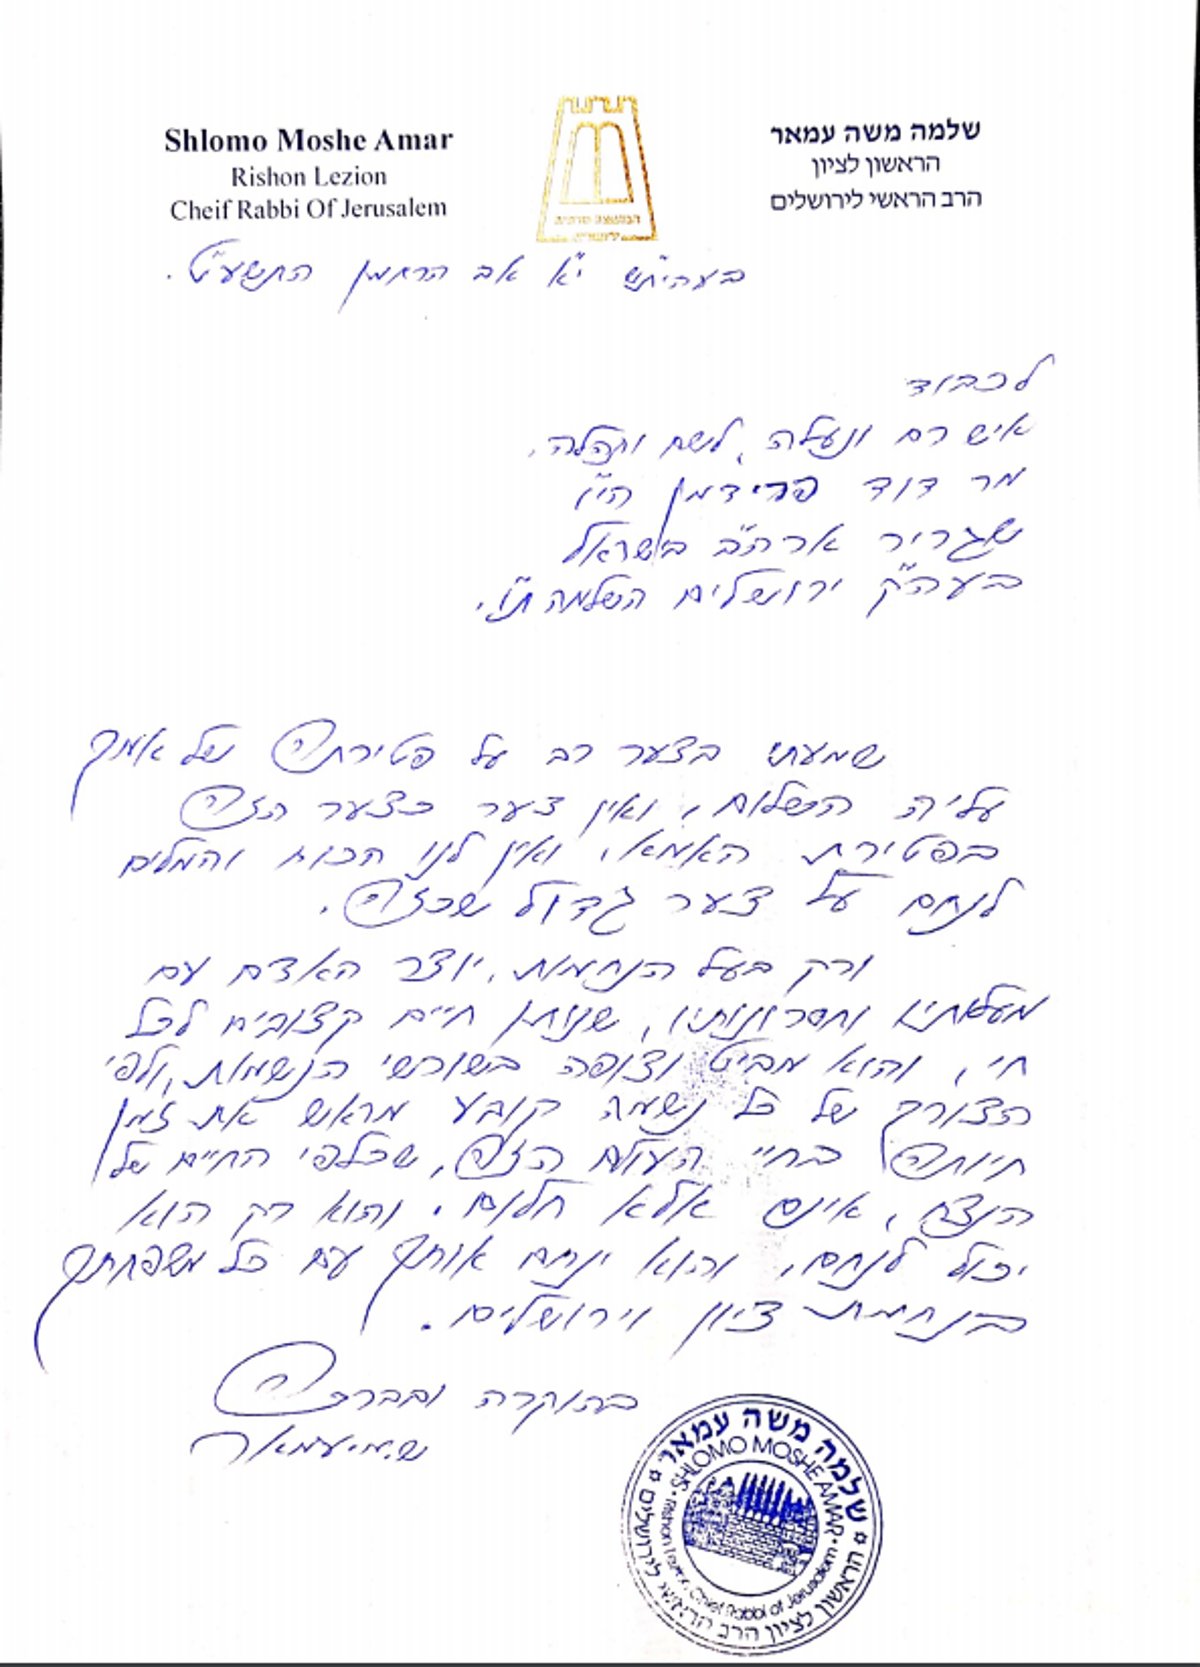 Shlomo Moshe Amar
Rishon Lezion
Cheif Rabbi Of Jerusalem
שלמה משה עמאר
הראשון לציון
הרב הראשי לירושלים
בעהי"ת י"א אב הרחמן התשע"ט.
לכבוד
איש רם ונעלה, לשם ותהלה,
מר דוד פרידמן הי"ו
שגריר ארה"ב בישראל
בעה"ק ירושלים השלמה ת"ו.
שמעתי בצער רב על פטירתה של אמך
עליה השלום, ואין צער כצער הזה
בפטירת האמא, ואין לנו הכוח והמלים
לנחם על צער גדול שכזה.
ורק בעל הנחמות, יוצר האדם עם
מעלותיו וחסרונותיו, שנותן חיים קצובים לכל
חי, והוא מביט וצופה בשורשי הנשמות, ולפי
הצורך של כל נשמה קובע מראש את זמן
חיותה בחיי העולם הזה, שכלפי החיים של
הנצח, אינם אלא חלום. והוא רק הוא
יכול לנחם, והוא ינחם אותך עם כל משפחתך
בנחמת ציון וירושלים.
בהוקרה ובברכה
ש.מ. עמאר
שלמה משה עמאר
SHLOMO MOSHE AMAR
Rishon Lezion, Chief Rabbi of Jerusalem
הראשון לציון הרב הראשי לירושלים